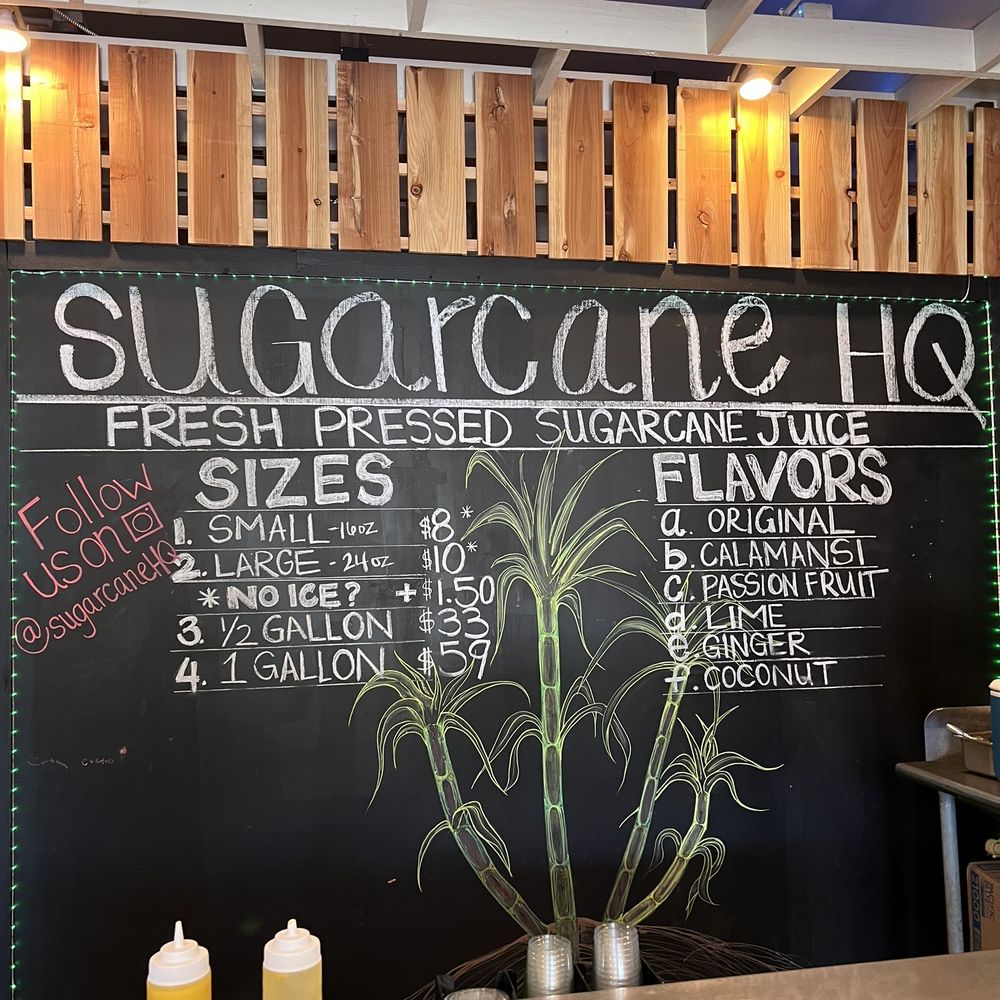 SUGARCANE HQ
FRESH PRESSED SUGARCANE JUICE
Follow
us on
@sugarcaneHQ
SIZES
1. SMALL -16oz $8*
2. LARGE - 24oz $10*
*NO ICE? + $1.50
3. ½ GALLON $33
4. 1 GALLON $59
FLAVORS
a. ORIGINAL
b. CALAMANSI
c. PASSION FRUIT
d. LIME
e. GINGER
f. COCONUT